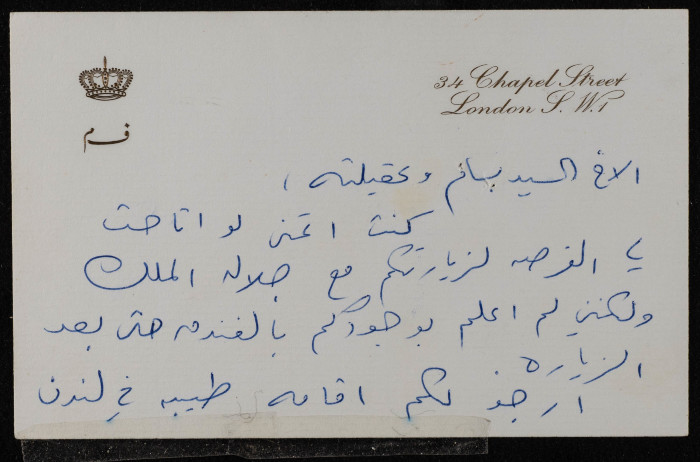 34 Chapel Street
London S.W.1
الاخ السيد بسام وعقيلته ،
كنت اتمنى لو اتاحت
لي الفرصه لزيارتكم مع جلالة الملك
ولكنني لم اعلم بوجودكم بالفندق حتى بعد
الزياره
ارجو لكم اقامه طيبه في لندن